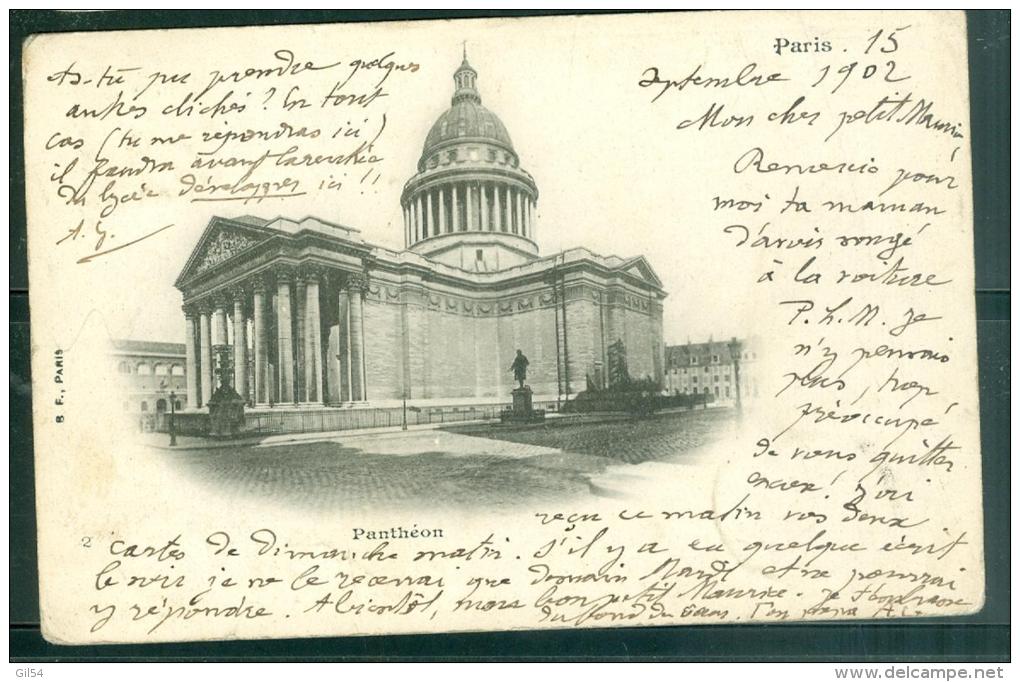 Paris. 15
septembre 1902
Mon cher petit Maurice,
Remercie pour
moi ta maman
d'avoir songé
à la voiture
P.L.M. Je
n'y pensais
plus, trop
préoccupé
de vous quitter
encore! J'ai
reçu ce matin vos deux
cartes de Dimanche matin. S'il y a eu quelque écrit
le soir je ne le recevrai que demain Mardi et ne pourrai
y répondre. A bientôt, mon bon petit Maurice. Je t'embrasse
du fond du cœur. Ton papa
As-tu pu prendre quelques
autres clichés? En tout
cas (tu me répondras ici)
il faudra avant la rentrée
du lycée développer ici!!
A. G.
B F., PARIS
2
Panthéon
Gil54
www.delcampe.net